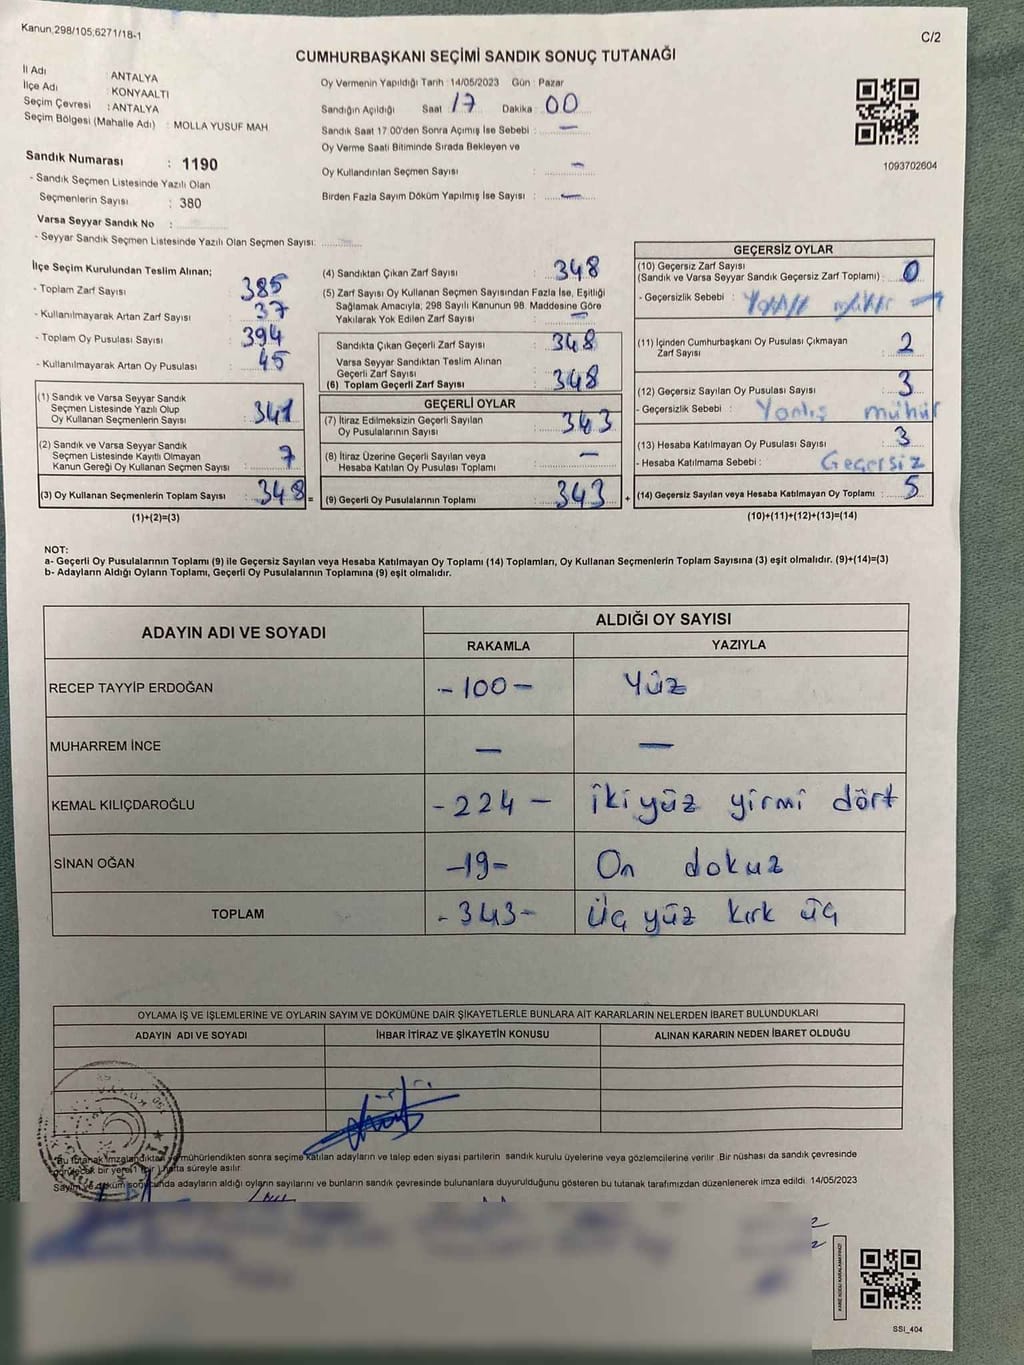 Kanun,298/105;6271/18-1
C/2
CUMHURBAŞKANI SEÇİMİ SANDIK SONUÇ TUTANAĞI
İl Adı : ANTALYA
İlçe Adı : KONYAALTI
Seçim Çevresi : ANTALYA
Seçim Bölgesi (Mahalle Adı) : MOLLA YUSUF MAH
Sandık Numarası : 1190
- Sandık Seçmen Listesinde Yazılı Olan
Seçmenlerin Sayısı : 380
Varsa Seyyar Sandık No :
- Seyyar Sandık Seçmen Listesinde Yazılı Olan Seçmen Sayısı:
Oy Vermenin Yapıldığı Tarih : 14/05/2023 Gün : Pazar
Sandığın Açıldığı Saat 17 Dakika 00
Sandık Saat 17:00'den Sonra Açımış İse Sebebi : —
Oy Verme Saati Bitiminde Sırada Bekleyen ve
Oy Kullandırılan Seçmen Sayısı : —
Birden Fazla Sayım Döküm Yapılmış İse Sayısı : —
1093702604
İlçe Seçim Kurulundan Teslim Alınan;
- Toplam Zarf Sayısı : 385
- Kullanılmayarak Artan Zarf Sayısı : 37
- Toplam Oy Pusulası Sayısı : 394
- Kullanılmayarak Artan Oy Pusulası : 45
(1) Sandık ve Varsa Seyyar Sandık
Seçmen Listesinde Yazılı Olup
Oy Kullanan Seçmenlerin Sayısı : 341
(2) Sandık ve Varsa Seyyar Sandık
Seçmen Listesinde Kayıtlı Olmayan
Kanun Gereği Oy Kullanan Seçmen Sayısı : 7
(3) Oy Kullanan Seçmenlerin Toplam Sayısı : 348 =
(1)+(2)=(3)
(4) Sandıktan Çıkan Zarf Sayısı : 348
(5) Zarf Sayısı Oy Kullanan Seçmen Sayısından Fazla İse, Eşitliği
Sağlamak Amacıyla, 298 Sayılı Kanunun 98. Maddesine Göre
Yakılarak Yok Edilen Zarf Sayısı : —
Sandıkta Çıkan Geçerli Zarf Sayısı : 348
Varsa Seyyar Sandıktan Teslim Alınan
Geçerli Zarf Sayısı
(6) Toplam Geçerli Zarf Sayısı : 348
GEÇERLİ OYLAR
(7) İtiraz Edilmeksizin Geçerli Sayılan
Oy Pusulalarının Sayısı : 343
(8) İtiraz Üzerine Geçerli Sayılan veya
Hesaba Katılan Oy Pusulası Toplamı : —
(9) Geçerli Oy Pusulalarının Toplamı : 343 +
GEÇERSİZ OYLAR
(10) Geçersiz Zarf Sayısı
(Sandık ve Varsa Seyyar Sandık Geçersiz Zarf Toplamı) : 0
- Geçersizlik Sebebi :
(11) İçinden Cumhurbaşkanı Oy Pusulası Çıkmayan
Zarf Sayısı : 2
(12) Geçersiz Sayılan Oy Pusulası Sayısı : 3
- Geçersizlik Sebebi : Yanlış mühür
(13) Hesaba Katılmayan Oy Pusulası Sayısı : 3
- Hesaba Katılmama Sebebi : Geçersiz
(14) Geçersiz Sayılan veya Hesaba Katılmayan Oy Toplamı : 5
(10)+(11)+(12)+(13)=(14)
NOT:
a- Geçerli Oy Pusulalarının Toplamı (9) ile Geçersiz Sayılan veya Hesaba Katılmayan Oy Toplamı (14) Toplamları, Oy Kullanan Seçmenlerin Toplam Sayısına (3) eşit olmalıdır. (9)+(14)=(3)
b- Adayların Aldığı Oyların Toplamı, Geçerli Oy Pusulalarının Toplamına (9) eşit olmalıdır.
ADAYIN ADI VE SOYADI
ALDIĞI OY SAYISI
RAKAMLA YAZIYLA
RECEP TAYYİP ERDOĞAN -100- Yüz
MUHARREM İNCE — —
KEMAL KILIÇDAROĞLU -224- iki yüz yirmi dört
SİNAN OĞAN -19- On dokuz
TOPLAM -343- Üç yüz kırk üç
OYLAMA İŞ VE İŞLEMLERİNE VE OYLARIN SAYIM VE DÖKÜMÜNE DAİR ŞİKAYETLERLE BUNLARA AİT KARARLARIN NELERDEN İBARET BULUNDUKLARI
ADAYIN ADI VE SOYADI İHBAR İTİRAZ VE ŞİKAYETİN KONUSU ALINAN KARARIN NEDEN İBARET OLDUĞU
Bu tutanak imzalandıktan mühürlendikten sonra seçime katılan adayların ve talep eden siyasi partilerin sandık kurulu üyelerine veya gözlemcilerine verilir. Bir nüshası da sandık çevresinde
görülecek bir yere 1 (bir) hafta süreyle asılır.
Sayım ve döküm sonucunda adayların aldığı oyların sayılarını ve bunların sandık çevresinde bulunanlara duyurulduğunu gösteren bu tutanak tarafımızdan düzenlenerek imza edildi. 14/05/2023
SSI_404